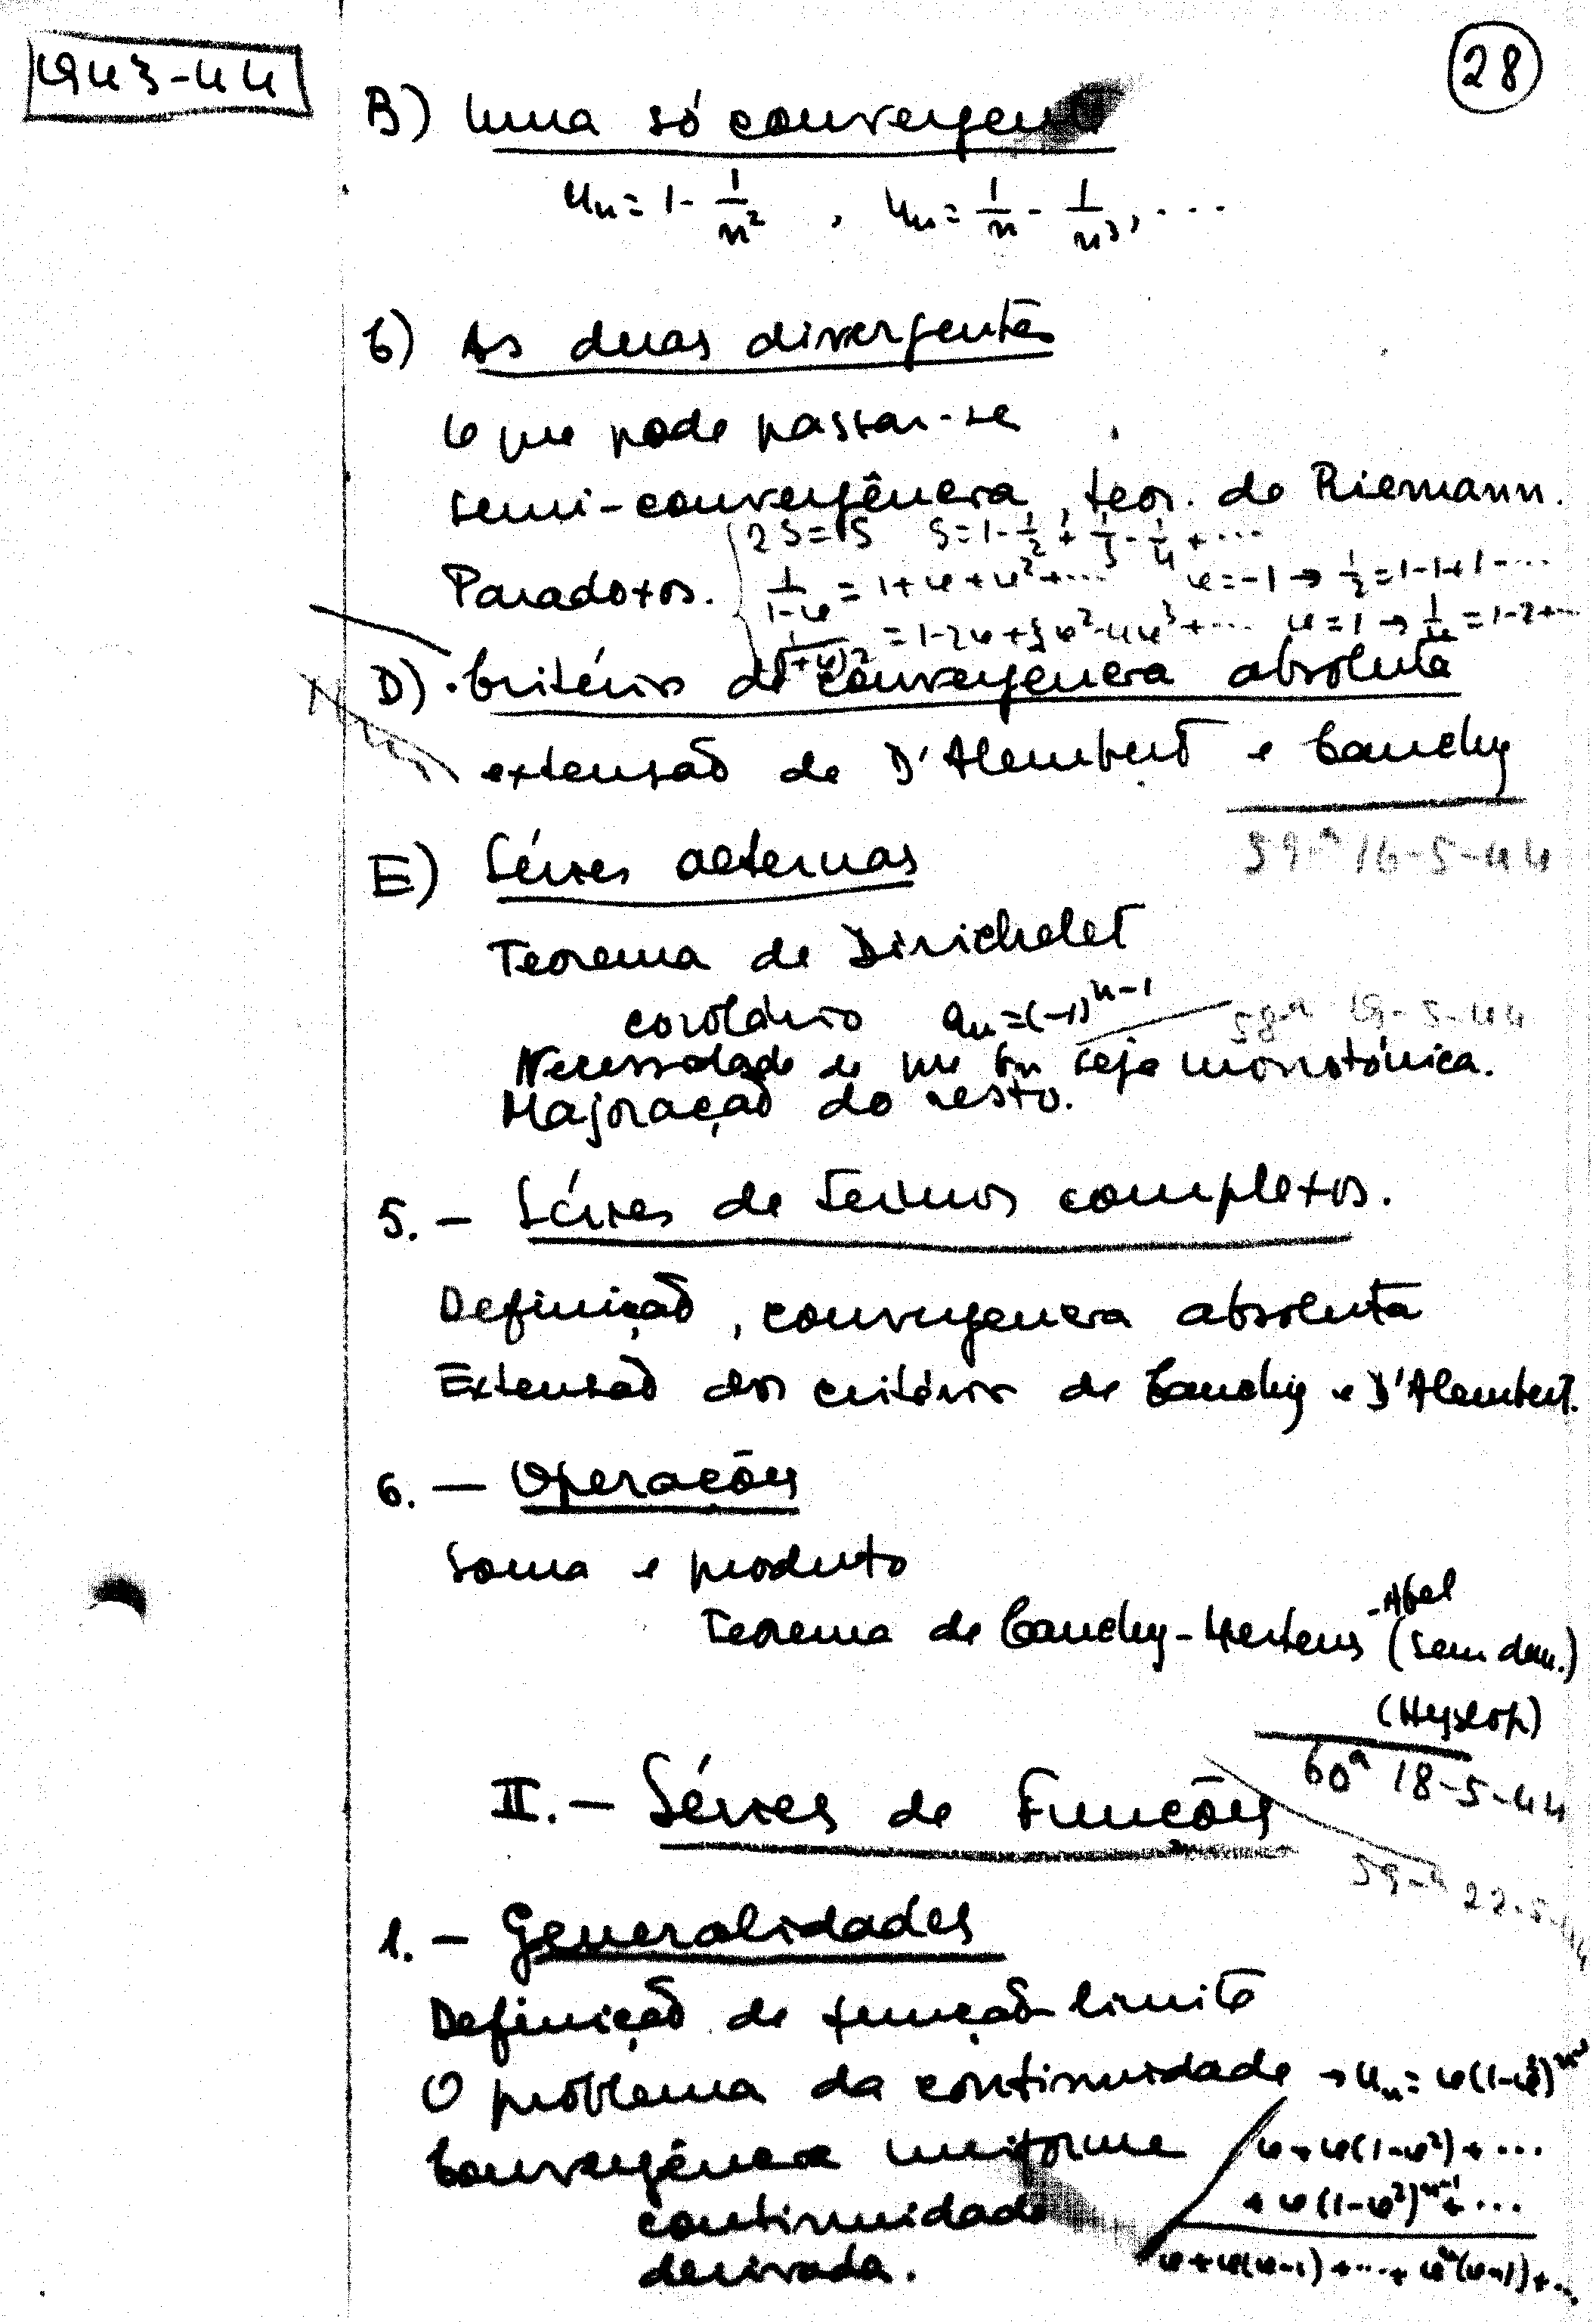 1943-44
28
B) Uma só convergente
u_n = 1 - 1/n², u_n = 1/n - 1/n³, ...
C) As duas divergentes
O que pode passar-se
semi-convergência, teor. de Riemann.
2S = S   S = 1 - 1/2 + 1/3 - 1/4 + ...
Paradoxos. 1/(1-x) = 1 + x + x² + ...   x = -1 → 1/2 = 1-1+1-...
1/(1+x)² = 1 - 2x + 3x² - 4x³ + ...   x = 1 → 1/4 = 1-2+...
D) Critérios de convergencia absoluta
extensão de D'Alembert e Cauchy
59.ª 16-5-44
E) Séries alternas
Teorema de Dirichelet
corolário a_n = (-1)^{n-1}
58.ª 19-5-44
Necessidade de que b_n seja monotónica.
Majoração do resto.
5. - Séries de termos complexos.
Definição, convergencia absoluta
Extensão dos critérios de Cauchy e D'Alembert.
6. - Operações
Soma e produto
Teorema de Cauchy-Mertens-Abel (sem dem.)
(Hyslop)
60ª 18-5-44
II. - Séries de Funções
59.ª 22-5-44
1. - Generalidades
Definição de função limite
O problema da continuidade → u_n = x(1-x²)^{n-1}
Convergência uniforme x + x(1-x²) + ...
+ x(1-x²)^{n-1} + ...
continuidade
derivada.
x + x(x-1) + ... + x^n(x-1) + ...